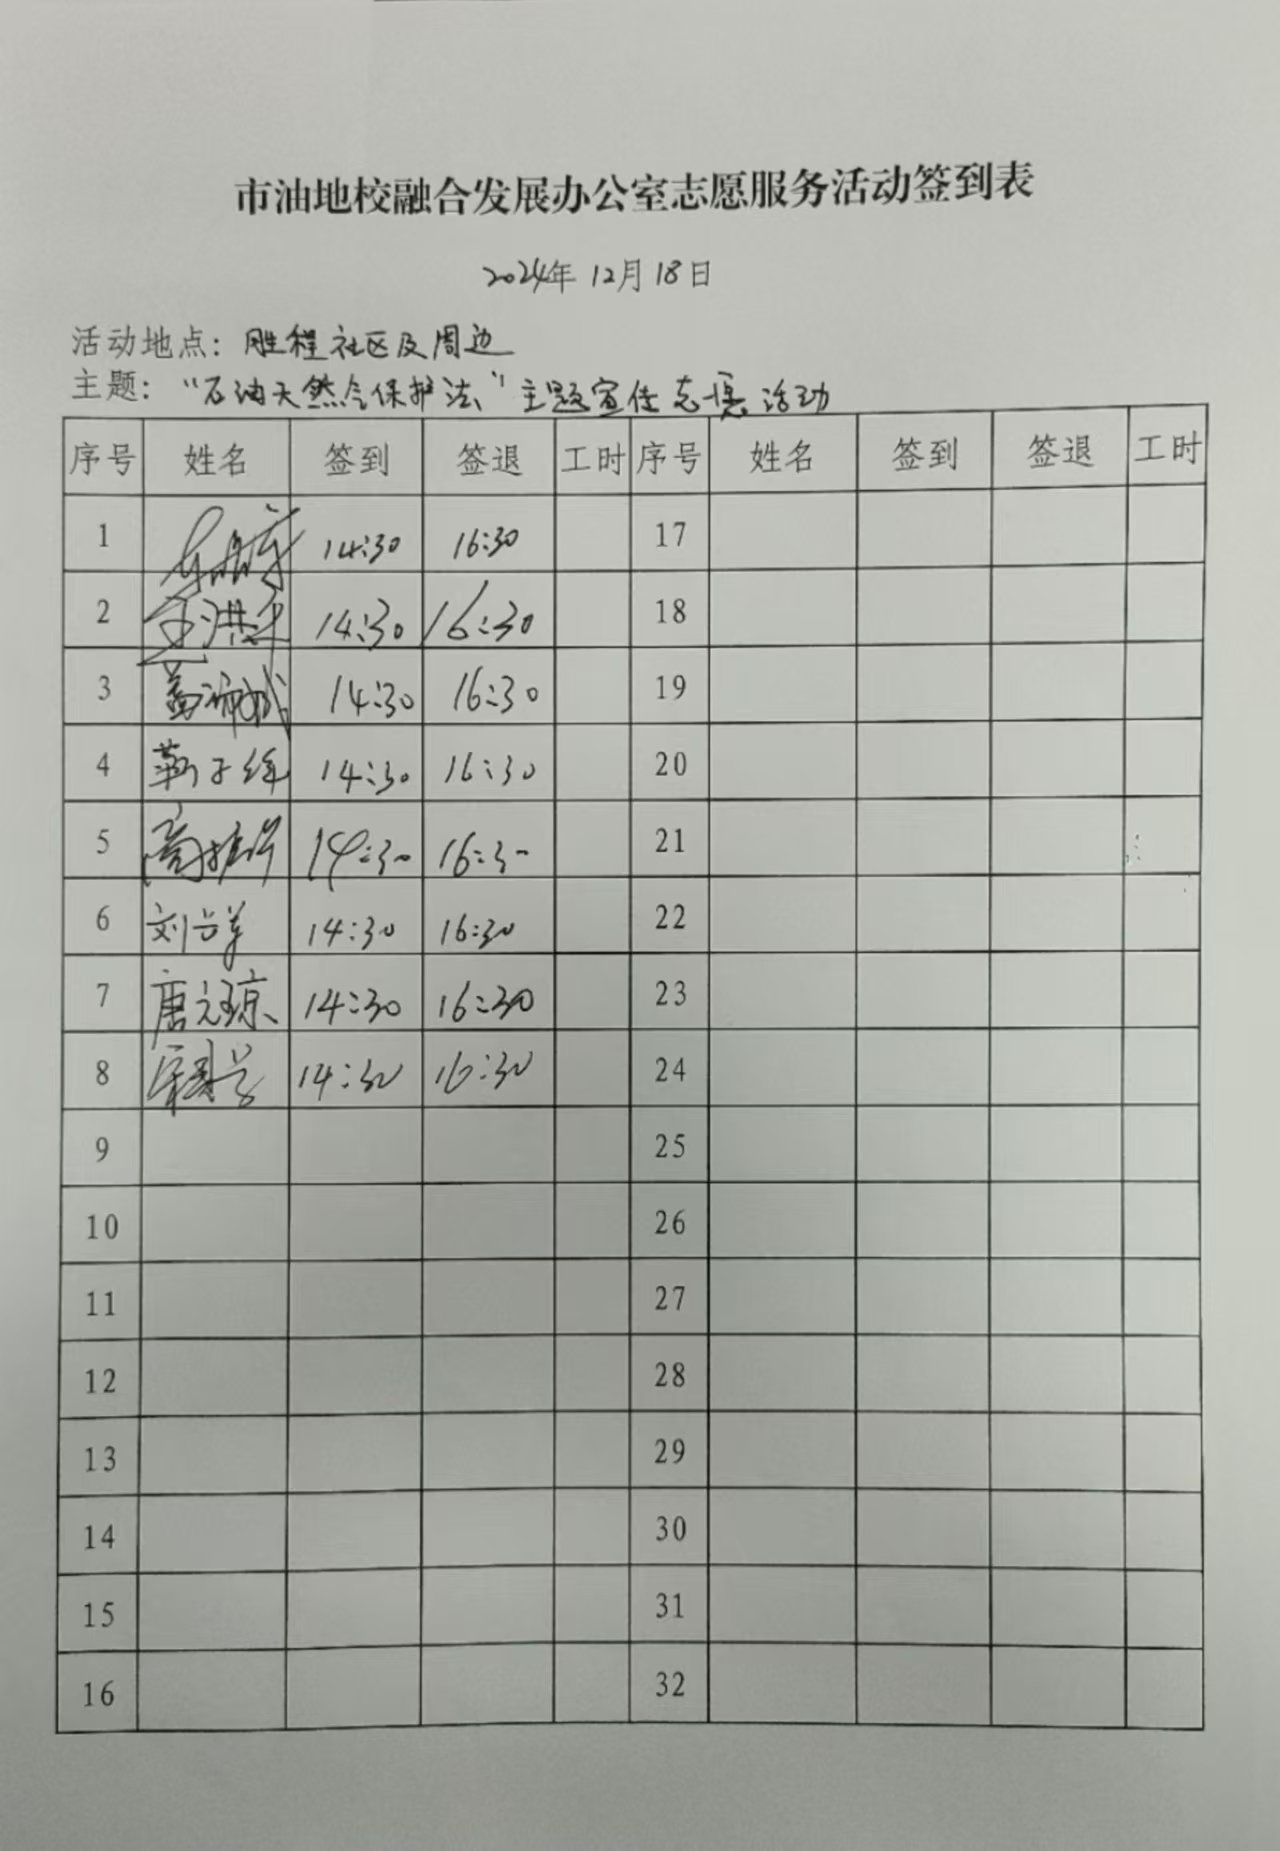 市油地校融合发展办公室志愿服务活动签到表
2024年 12月 18日
活动地点：胜程社区及周边
主题："石油天然气保护法"主题宣传志愿活动
序号 姓名 签到 签退 工时 序号 姓名 签到 签退 工时
1 14:30 16:30 17
2 14:30 16:30 18
3 14:30 16:30 19
4 14:30 16:30 20
5 14:30 16:30 21
6 刘 14:30 16:30 22
7 唐元琼 14:30 16:30 23
8 14:30 16:30 24
9 25
10 26
11 27
12 28
13 29
14 30
15 31
16 32